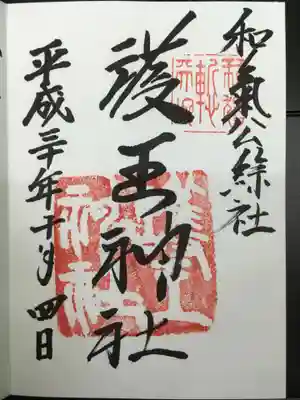 和氣公綜社
護王神社
平成三十年十月四日
護王神社